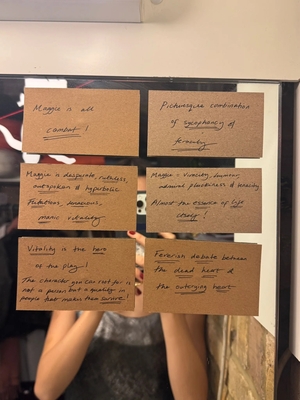 Maggie is all
combat!
Picturesque combination
of sycophancy &
ferocity
Maggie is desperate, ruthless,
outspoken & hyperbolic
tenacious,
manic vitality
Maggie = vivacity, humour,
animal pluckiness & tenacity
Almost the essence of life
itself!
Vitality is the hero
of the play!
The character you can root for is
not a person but a quality in
people that makes them survive!
Feverish debate between
the dead heart &
the outcrying heart